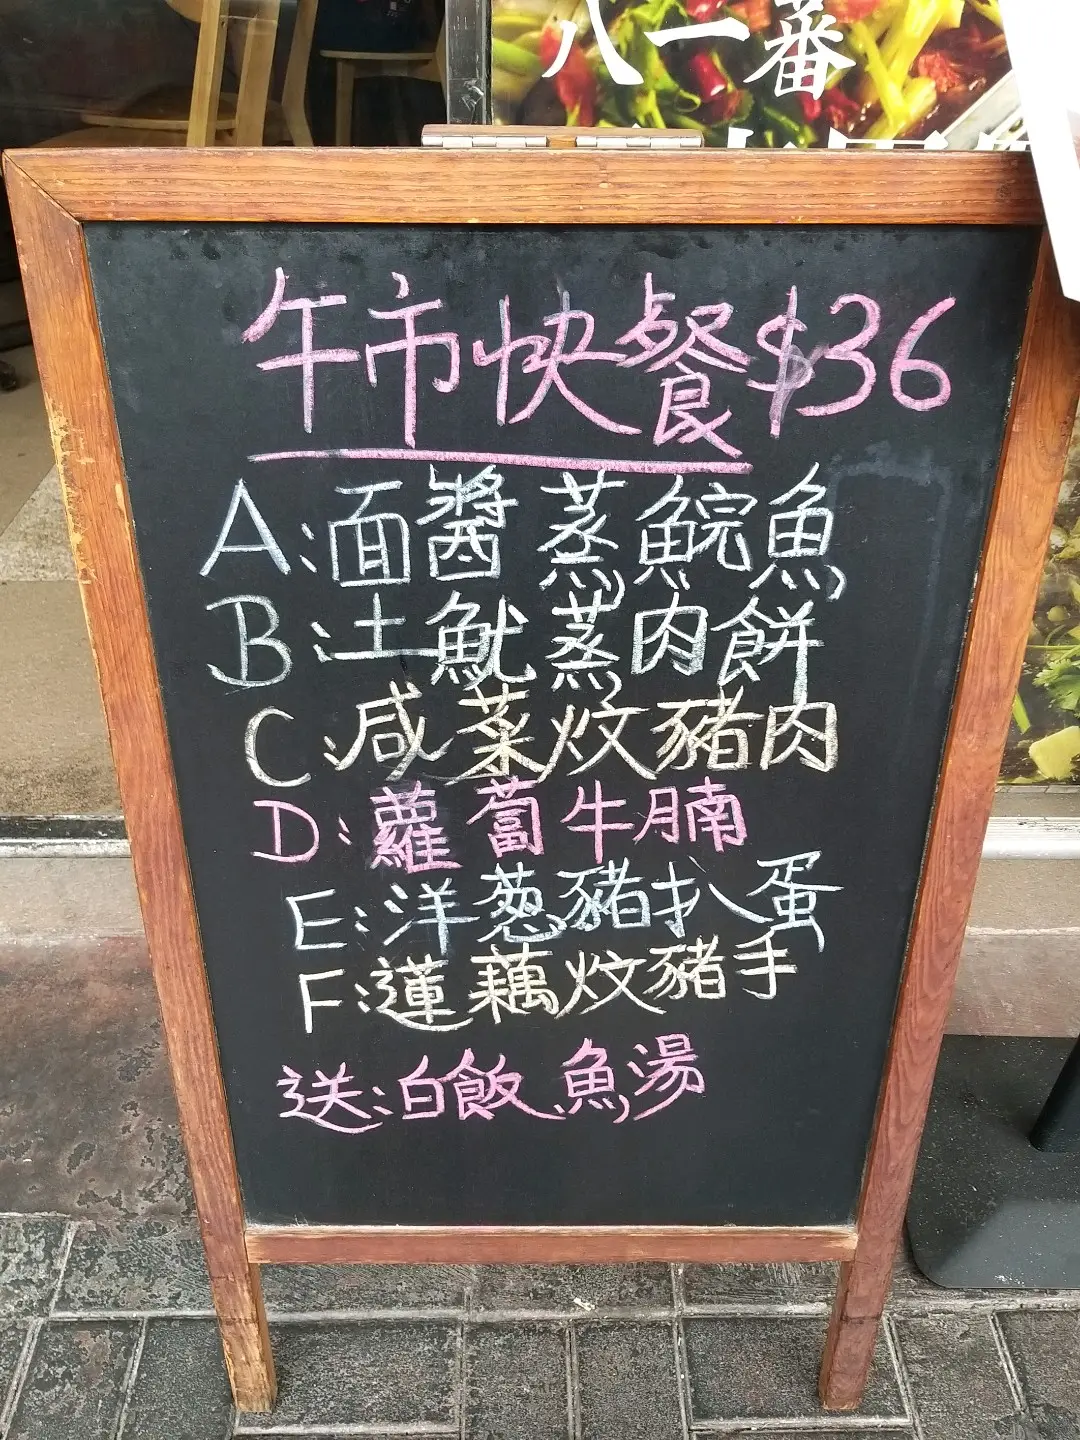 八一番
午市快餐$36
A:面醬蒸鯇魚
B:土魷蒸肉餅
C:咸菜炆豬肉
D:蘿蔔牛腩
E:洋葱豬扒蛋
F:蓮藕炆豬手
送:白飯、魚湯